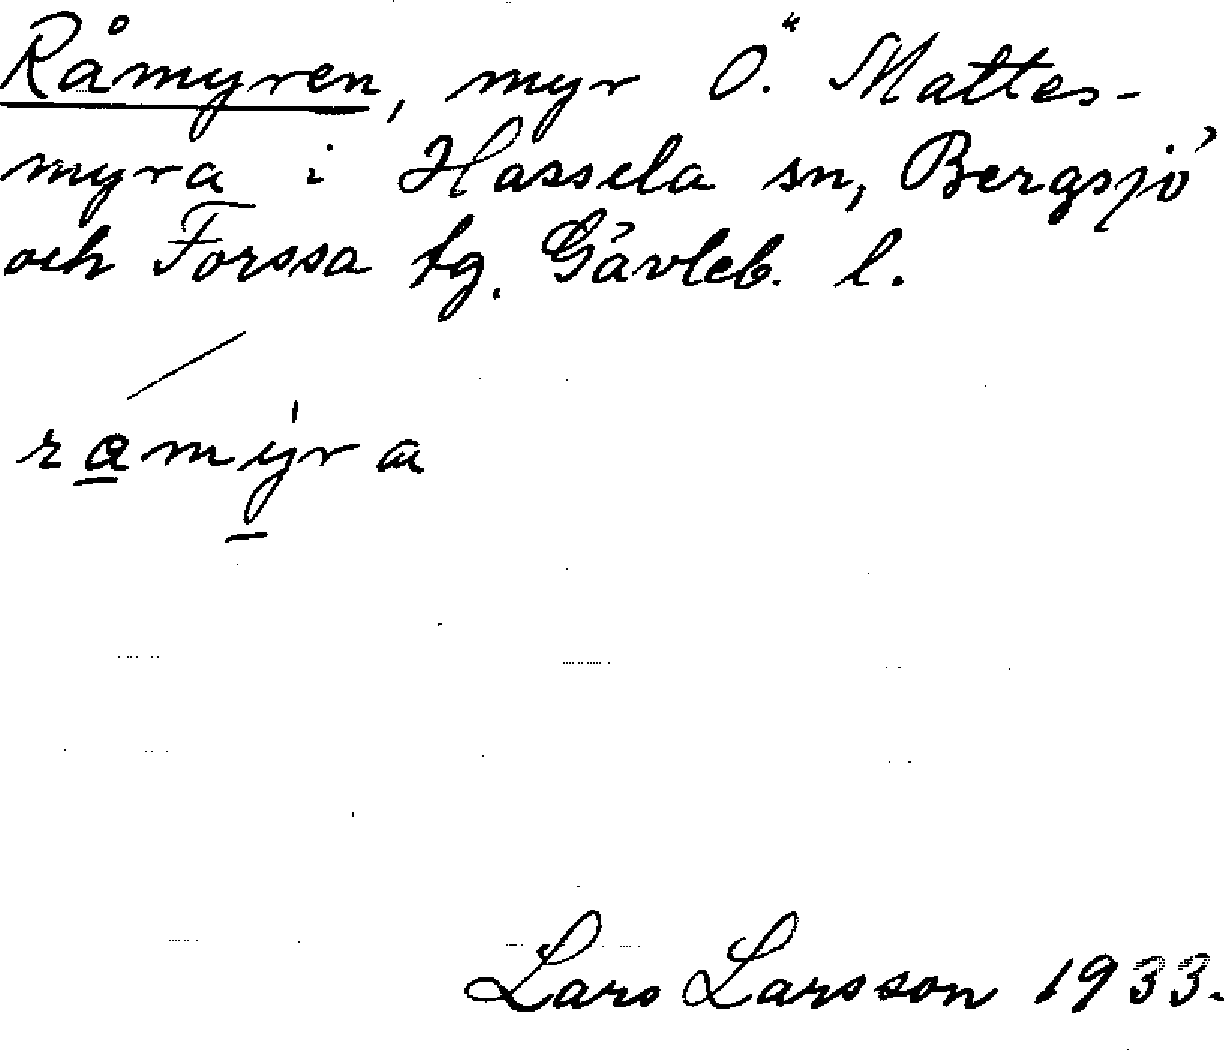 Råmyren, myr Ö. Mattes-
myra i Hassela sn, Bergsjö
och Forssa tg. Gävleb. l.
råmyra
Lars Larsson 1933.